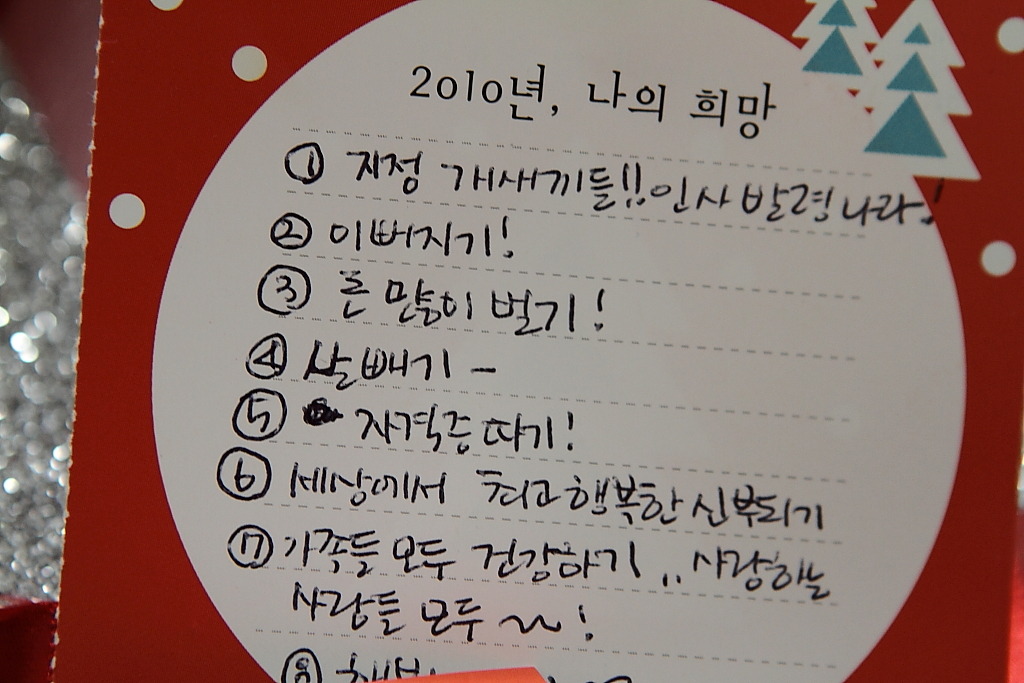 2010년, 나의 희망
① 지정 개새끼들!! 인사발령나라!
② 이뻐지기!
③ 돈 많이 벌기!
④ 살빼기 -
⑤ 자격증 따기!
⑥ 세상에서 최고 행복한 신부되기
⑦ 가족들 모두 건강하기 .. 사랑하는
사람들 모두 ~~!
⑧